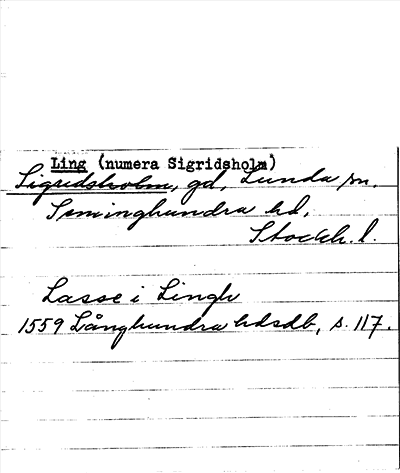 Ling (numera Sigridsholm)
Sigridsholm, gd, Lunda sn.
Seminghundra hd,
Stockh. l.
Lasse i Lingh
1559 Långhundra hdsdb, s. 117.